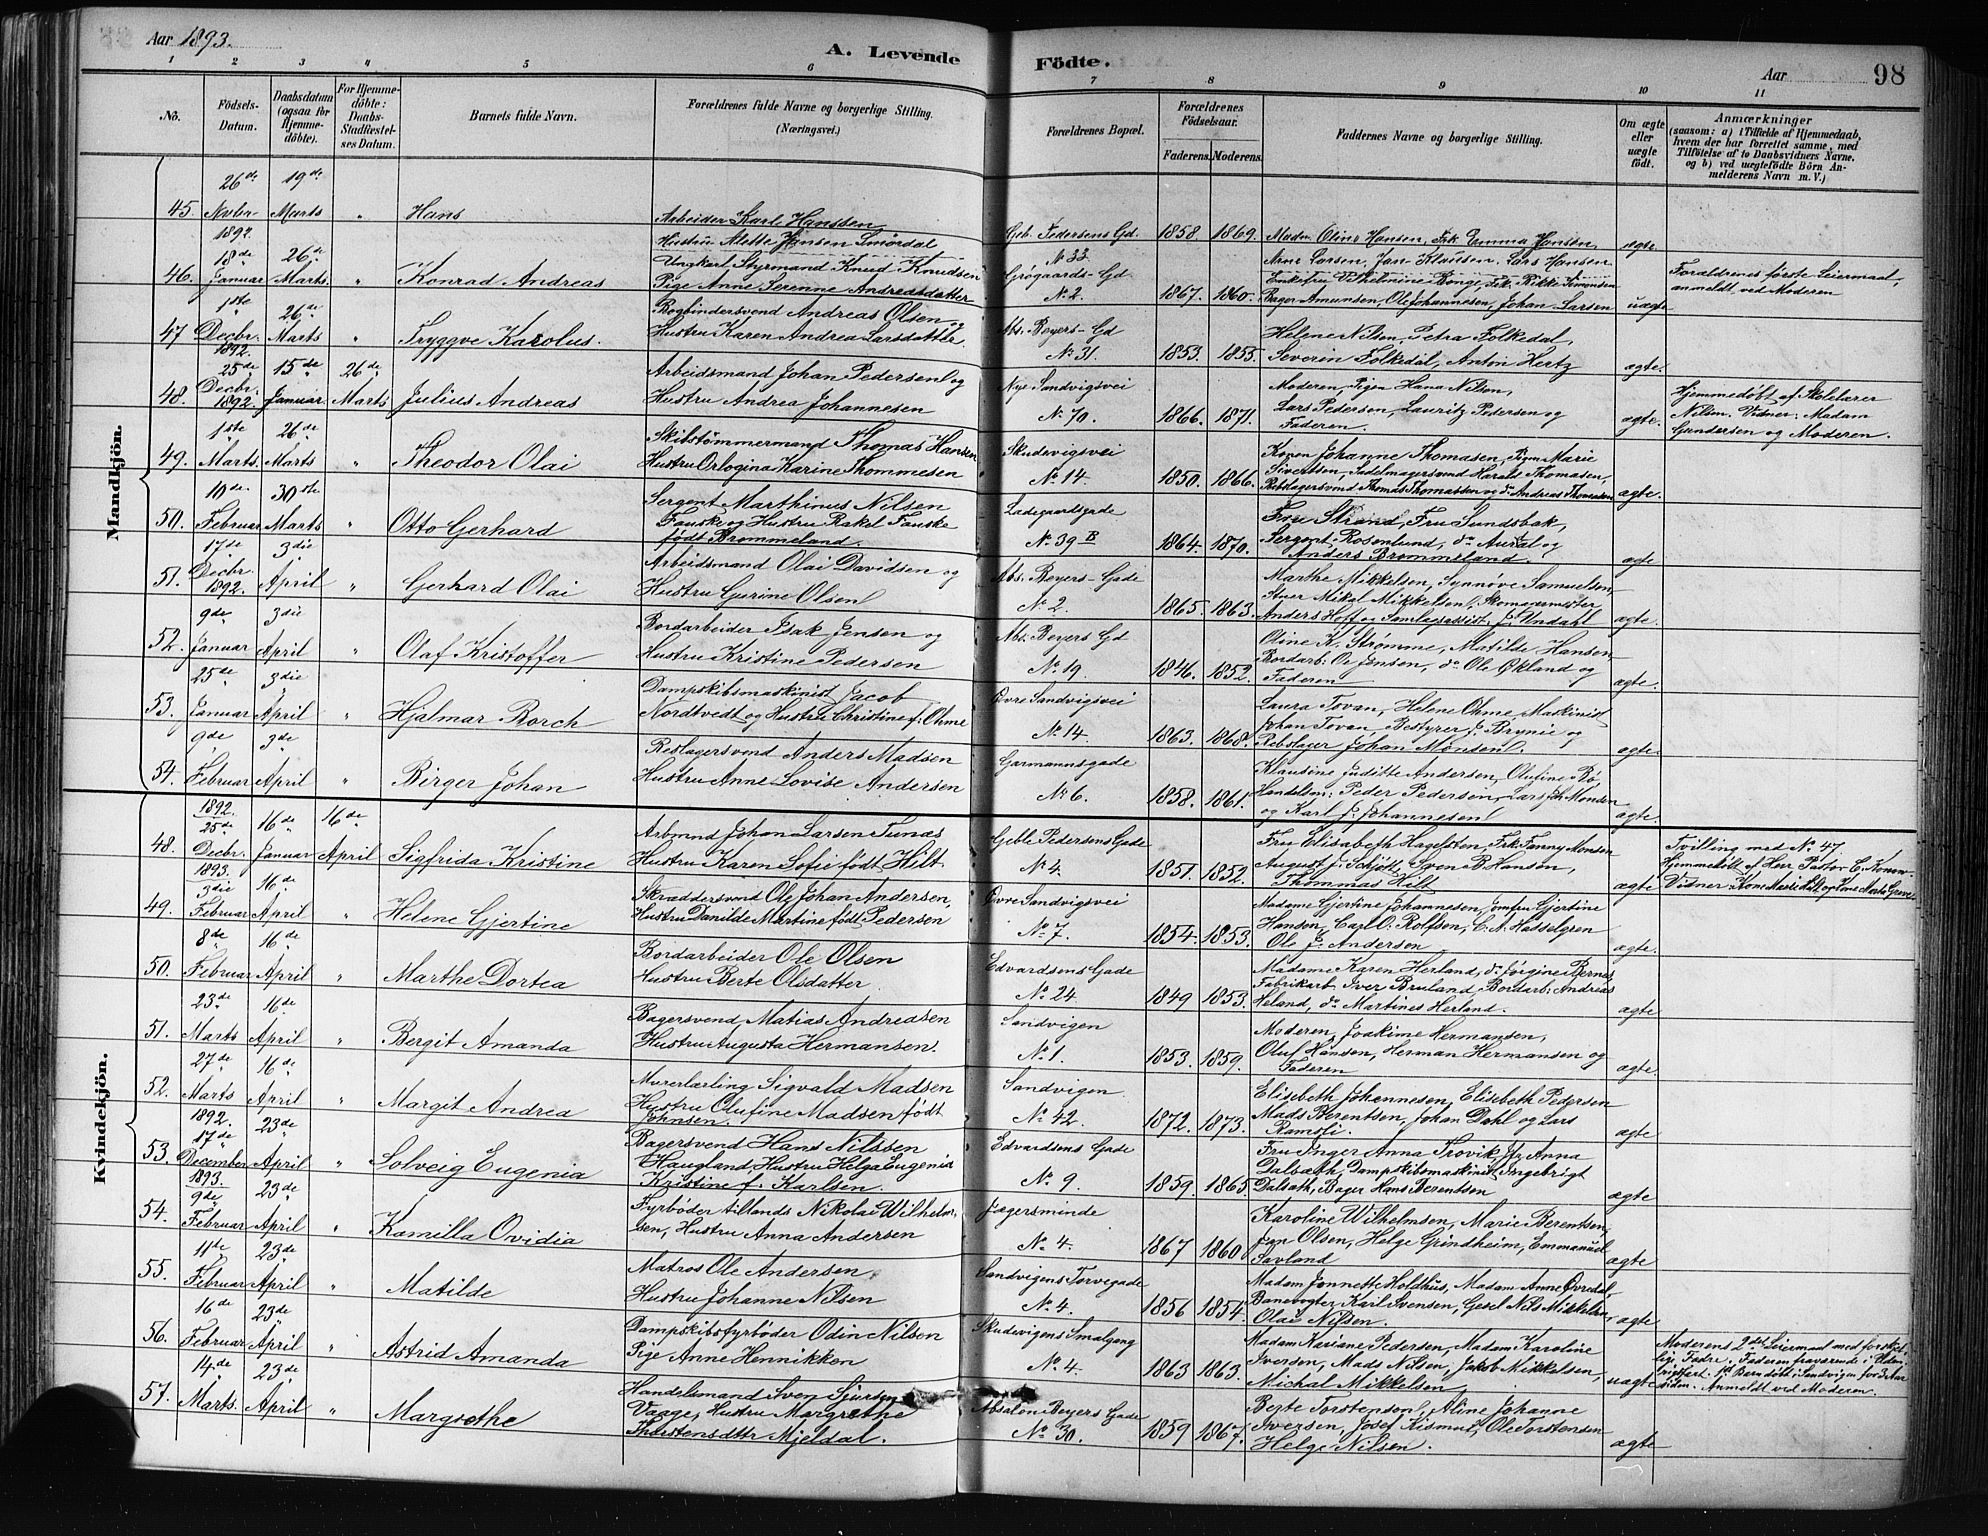 Aar 1893.
A. Levende Födte.
Aar
98
1 2 3 4 5 6 7 8 9 10 11
No.
Födsels-
Datum.
Daabsdatum
(ogsaa for
Hjemme-
döbte).
For Hjemme-
döbte:
Daabs-
Stadfæstel-
ses Datum.
Barnets fulde Navn.
Forældrenes fulde Navne og borgerlige Stilling.
(Næringsvei.)
Forældrenes Bopæl.
Forældrenes
Födselsaar.
Faderens. Moderens.
Faddernes Navne og borgerlige Stilling.
Om ægte
eller
uægte
födt.
Anmærkninger
(saasom: a) i Tilfælde af Hjemmedaab,
hvem der har forrettet samme, med
Tilföielse af to Daabsvidners Navne.
og b) ved uægtefödte Börn An-
melderens Navn m. V.)
Mandkjön.
45. 26de Novbr 1892. 19de Marts " Hans
Arbeider Karl Hanssen,
Hustru Alette Jensen Smördal
Geb. Pedersens Gd
No 33
1858 1869.
Madm Oline Hansen, Frk Emma Hansen,
Arne Larsen, Jan Klausen, Lars Hansen
ægte
46. 18de Januar 26de Marts " Konrad Andreas
Ungkarl Styrmand Knud Knudsen
Pige Anne Serenne Andreasdatter
Grøgaards Gd
No 2.
1867. 1860.
Enkefru Vilhelmine Bonge, Frk. Rikke Simonsen
Bager Amundsen, Ole Johannesen, Johan Larsen
uægte
Forældrenes første Leiermaal,
anmeldt ved Moderen
47. 1ste Decbr. 1892. 26de Marts " Tryggve Karolus.
Bogbindersvend Andreas Olsen og
Hustru Karen Andrea Larsdatter
Abs. Beyers Gd
No 31.
1853. 1855.
Helene Nilsen, Petra Folkedal,
Severin Folkedal, Anton Hertz
ægte.
48. 25de Decbr. 1892. 15de Januar. 26de Marts Julius Andreas
Arbeidsmand Johan Pedersen og
Hustru Andrea Johannesen
Nye Sandvigsvei
No. 70.
1866. 1871.
Moderen, Pigen Hana Nilsen,
Lars Pedersen, Lauritz Pedersen og
Faderen.
ægte.
Hjemmedøbt af Skolelærer
Nilsen. Vidner: Madam
Gundersen og Moderen.
49. 1ste Marts. 26de Marts " Theodor Olai
Skibstømmermand Thomas Hansen
Hustru Orlogina Karine Thommesen
Skudevigsvei
No. 14.
1850. 1866.
Konen Johanne Thomasen, Pigen Marie
Sivertsen, Sadelmagersvend Harald Thomasen,
Rebslagersvend Thomas Thomassen og do Andreas Thomasen
ægte.
50. 10de Februar 30ste Marts " Otto Gerhard
Sergent Marthinus Nilsen
Fauske og Hustru Rakel Fauske
født Brommeland.
Ladegaardsgade
No. 39 B
1864. 1870.
Fru Strand, Fru Sundsbak,
Sergent Rosenlund, do Aurdal og
Anders Brommeland.
ægte
51. 17de Decbr. 1892. 3die April " Gerhard Olai
Arbeidsmand Olai Davidsen og
Hustru Gurine Olsen
Abs. Beyers Gade
No 2.
1865. 1863.
Marthe Mikkelsen, Synnøve Samuelsen,
Stuer Mikal Mikkelsen, Skomagermester
Anders Hoff og Samlagsassist. J. Undahl
ægte.
52. 9de Januar 3die April " Olaf Kristoffer
Bordarbeider Isak Jensen og
Hustru Kristine Pedersen
Abs. Beyers Gd
No. 19.
1846. 1852.
Oline K. Strømme, Matilde Hansen,
Bordarb: Ole Jensen, do Ole Økland og
Faderen
ægte.
53. 25de Januar 3die April " Hjalmar Rorch
Dampskibsmaskinist Jacob
Nordtvedt og Hustru Christine f: Ohme
Øvre Sandvigsvei
No. 14.
1863. 1868.
Laura Tovan, Helene Ohme, Maskinist
Johan Tovan, Bestyrer J. Brynie og
Rebslager Johan Monsen.
ægte.
54. 9de Februar 3de April " Birger Johan
Reslagersvend Anders Madsen
Hustru Anne Lovise Andersen
Garmannsgade
No 6.
1858. 1861.
Klausine Juditte Andersen, Olufine Bø,
Handelsm: Peder Pedersen, Lars Jb. Monsen
og Karl J. Johannesen
ægte.
Kvindekjön.
48. 1892. 25de Decbr. 16de Januar 16de April Sigfrida Kristine
Arbmnd Johan Larsen Tunæs
Hustru Karen Sofie født Hilt.
Geble Pedersens Gade
No 4.
1851. 1852.
Fru Elisabeth Hagelsten, Frk. Fanny Monsen
August f. Schjøt, Sven B. Hansen,
Thommas Hilt
ægte
Tvilling med No 47.
Hjemmedøbt af Herr Pastor C. Konow.
Vidner: Kone Marie Hilt og Kone Marta Grene.
49. 1893. 3die Februar 16de April " Helene Gjertine
Skræddersvend Ole Johan Andersen,
Hustru Danilde Martine født Pedersen
Øvre Sandvigsvei
No. 7.
1854. 1853.
Madame Gjertine Johannesen, Jomfru Gjertine
Hansen, Carl O. Rolfsen, C. A. Hasselgren
Ole J. Andersen
ægte.
50. 8de Februar 16de April " Marthe Dortea
Bordarbeider Ole Olsen
Hustru Berte Olsdatter.
Edvardsens Gade
No. 24.
1849 1853.
Madame Karen Herland, do Jørgine Bernes,
Fabrikarb. Iver Bruland, Bordarb: Andreas
Heland, do Martines Herland.
ægte
51. 23de Marts 16de April " Bergit Amanda
Bagersvend Matias Andreasen
Hustru Augusta Hermansen.
Sandvigen
No. 1.
1853. 1859.
Moderen, Joakime Hermansen,
Oluf Hansen, Herman Hermansen og
Faderen
ægte.
52. 27de Marts 16de April " Margit Andrea
Murerlærling Sigvald Madsen
Hustru Olufine Madsen født
Johnsen.
Sandvigen
No. 42.
1872. 1873.
Elisebeth Johannesen, Elisebeth Pedersen
Mads Berentsen, Johan Dahl og Lars
Ramsli.
ægte
53. 1892. 17de December 23de April " Solveig Eugenia
Bagersvend Hans Nilssen
Haugland Hustru Helga Eugenia
Kristine f. Karlsen.
Edvardsens Gade
No. 9.
1859. 1865.
Fru Inger Anna Trovik, fr. Anna
Dalsæth, Dampskibsmaskinist Ingebrigt
Dalsæth, Bager Hans Berentsen
ægte
54. 1893. 9de Februar 23de April " Kamilla Ovidia
Fyrbøder tillands Nikolai Wilhelm-
sen, Hustru Anna Andersen
Jægersminde
No. 4.
1867 1860
Karoline Wilhelmsen, Marie Berentsen,
Jan Olsen, Helge Grindheim, Emmanuel
Savland
ægte
55. 11te Februar 23de April " Matilde
Matros Ole Andersen
Hustru Johanne Nilsen
Sandvigens Torvegade
No. 4.
1856 1854.
Madam Jonnette Holdhus, Madam Anne Øvredal,
Banevogter Karl Svensen, Gesel Nils Mikkelsen
Olai Nilsen.
ægte
56. 16de Februar 23de April " Astrid Amanda
Dampskibsfyrbøder Odin Nilsen
Pige Anne Hennikken
Skudevigens Smalgang
No. 4
1863 1863.
Madam Kariane Pedersen, Madam Karoline
Iversen, Mads Nilsen, Jakob Mikkelsen,
Michal Mikkelsen
uægte
Moderens 2det Leiermaal med forskjel-
lige Fædre. Faderen fraværende i Uden-
rigsfart. 1st Barn døbt i Sandvigen for 3 Aar
siden. Anmeldt ved Moderen.
57. 14de Marts. 23de April " Margrethe
Handelsmand Sven Sjursen
Vaage, Hustru Margrethe
Thorstensdttr Mjeldal.
Absalon Beyers Gade
No. 30.
1859 1867.
Berte Torstensen, Aline Johanne
Iversen, Josef Kismul, Ole Torstensen
Helge Nilsen.
ægte